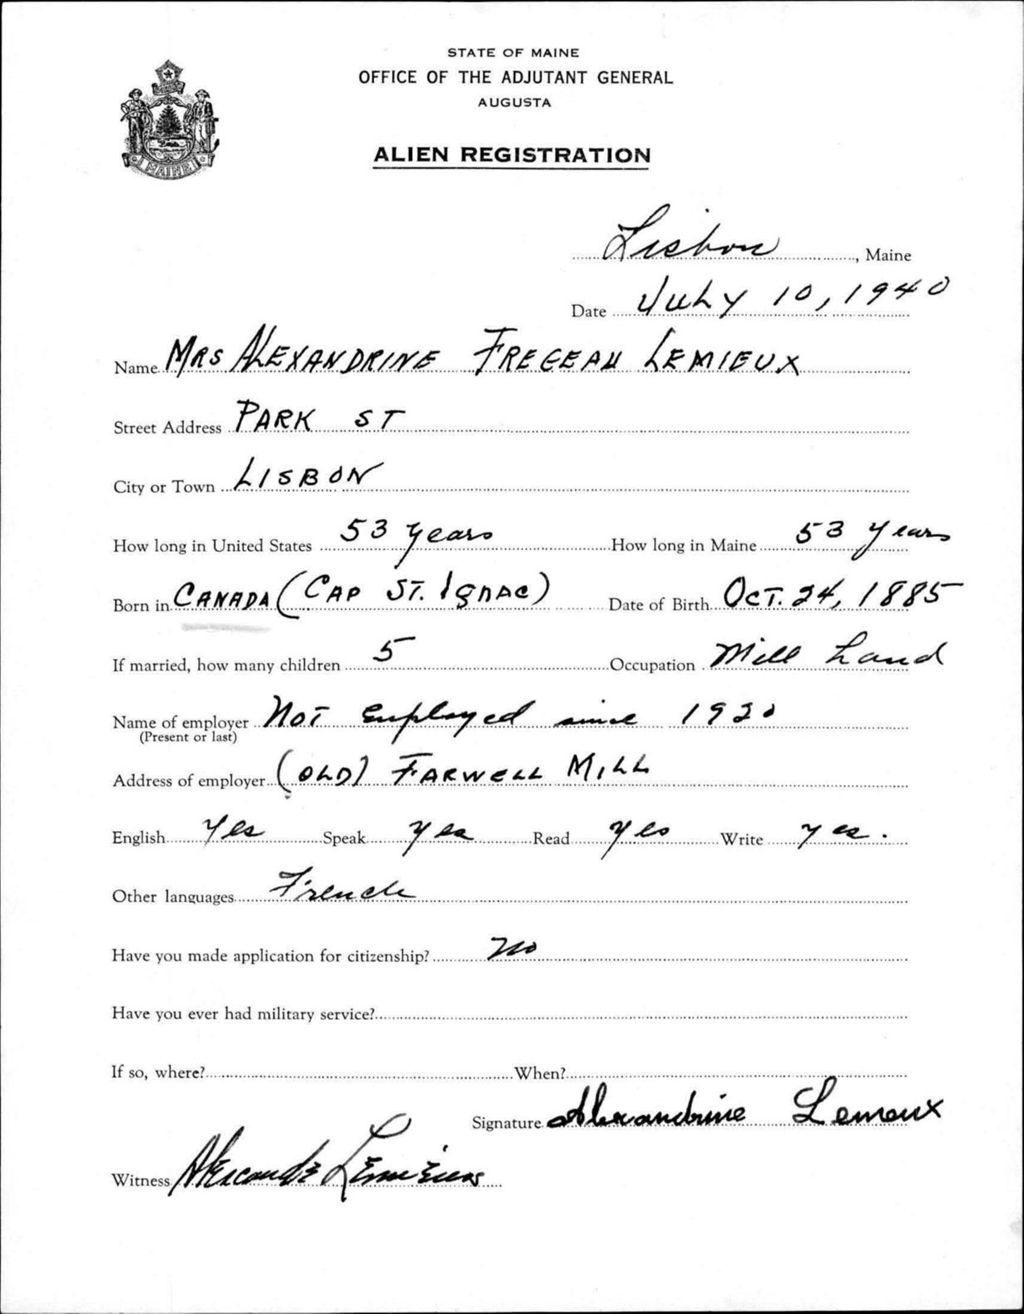 STATE OF MAINE
OFFICE OF THE ADJUTANT GENERAL
AUGUSTA
ALIEN REGISTRATION
MAINE
Lisbon, Maine
Date July 10, 1940
Name Mrs Alexandrine Fregeau Lemieux
Street Address Park St
City or Town Lisbon
How long in United States 53 years How long in Maine 53 years
Born in Canada (Cap St. Ignac) Date of Birth Oct. 24, 1885
If married, how many children 5 Occupation Mill Hand
Name of employer Not Employed since 1920
(Present or last)
Address of employer (Old) Farwell Mill
English Yes Speak yes Read yes Write yes.
Other languages French
Have you made application for citizenship? No
Have you ever had military service?
If so, where? When?
Signature Alexandrine Lemeux
Witness Lemieux